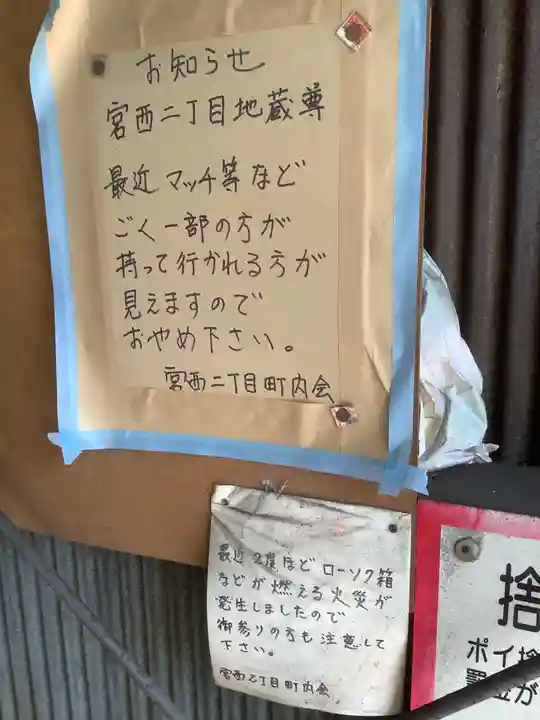 お知らせ
宮西二丁目地蔵尊
最近マッチ等など
ごく一部の方が
持って行かれる方が
見えますので
おやめ下さい。
宮西二丁目町内会
最近2度ほどローソク箱
などが燃える火災が
発生しましたので
御参りの方も注意して
下さい。
宮西二丁目町内会
捨
ポイ捨
罰金が